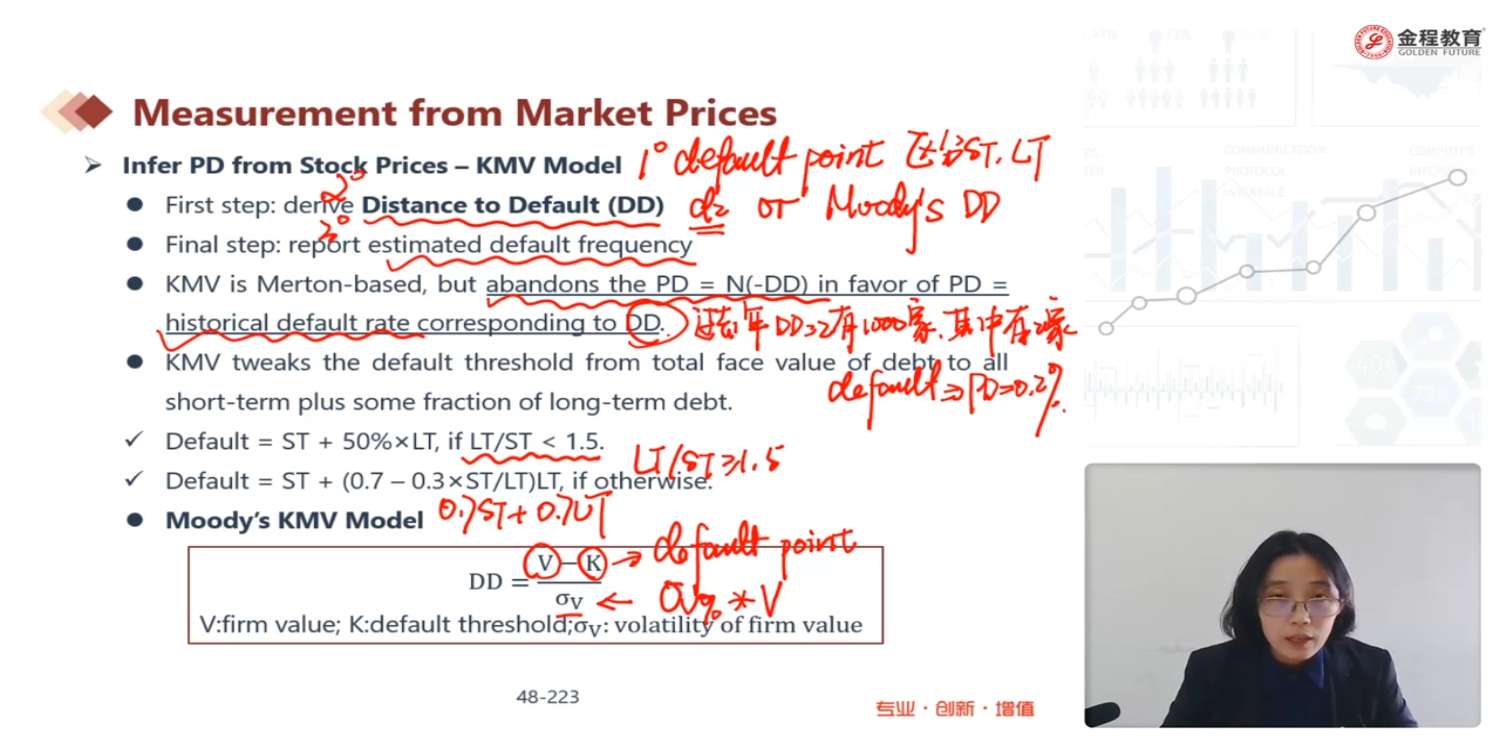 金程教育
GOLDEN FUTURE
Measurement from Market Prices
Infer PD from Stock Prices – KMV Model 1° default point 区分ST, LT
2°
First step: derive Distance to Default (DD) d2 or Moody's DD
3°
Final step: report estimated default frequency
KMV is Merton-based, but abandons the PD = N(-DD) in favor of PD =
historical default rate corresponding to DD. 过去1年DD=2有1000家, 其中有2家
KMV tweaks the default threshold from total face value of debt to all
default ⇒ PD=0.2%
short-term plus some fraction of long-term debt.
Default = ST + 50%×LT, if LT/ST < 1.5.
LT/ST≥1.5
Default = ST + (0.7 – 0.3×ST/LT)LT, if otherwise.
Moody's KMV Model 0.7ST+0.7LT
DD = V–K → default point
σV ← σV% * V
V:firm value; K:default threshold;σV: volatility of firm value
48-223
专业·创新·增值